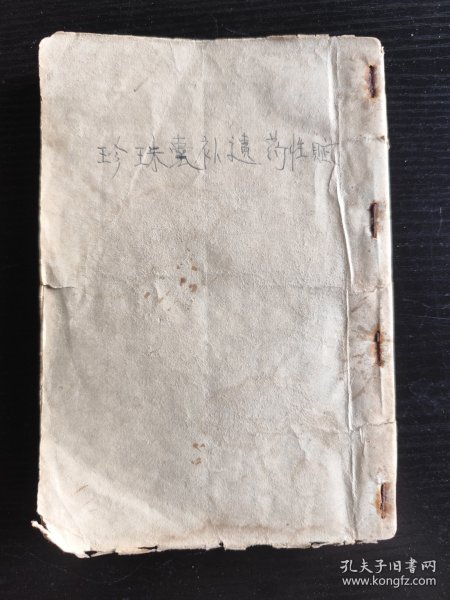 珍珠囊补遗药性赋
孔夫子旧书网
www.kongfz.com